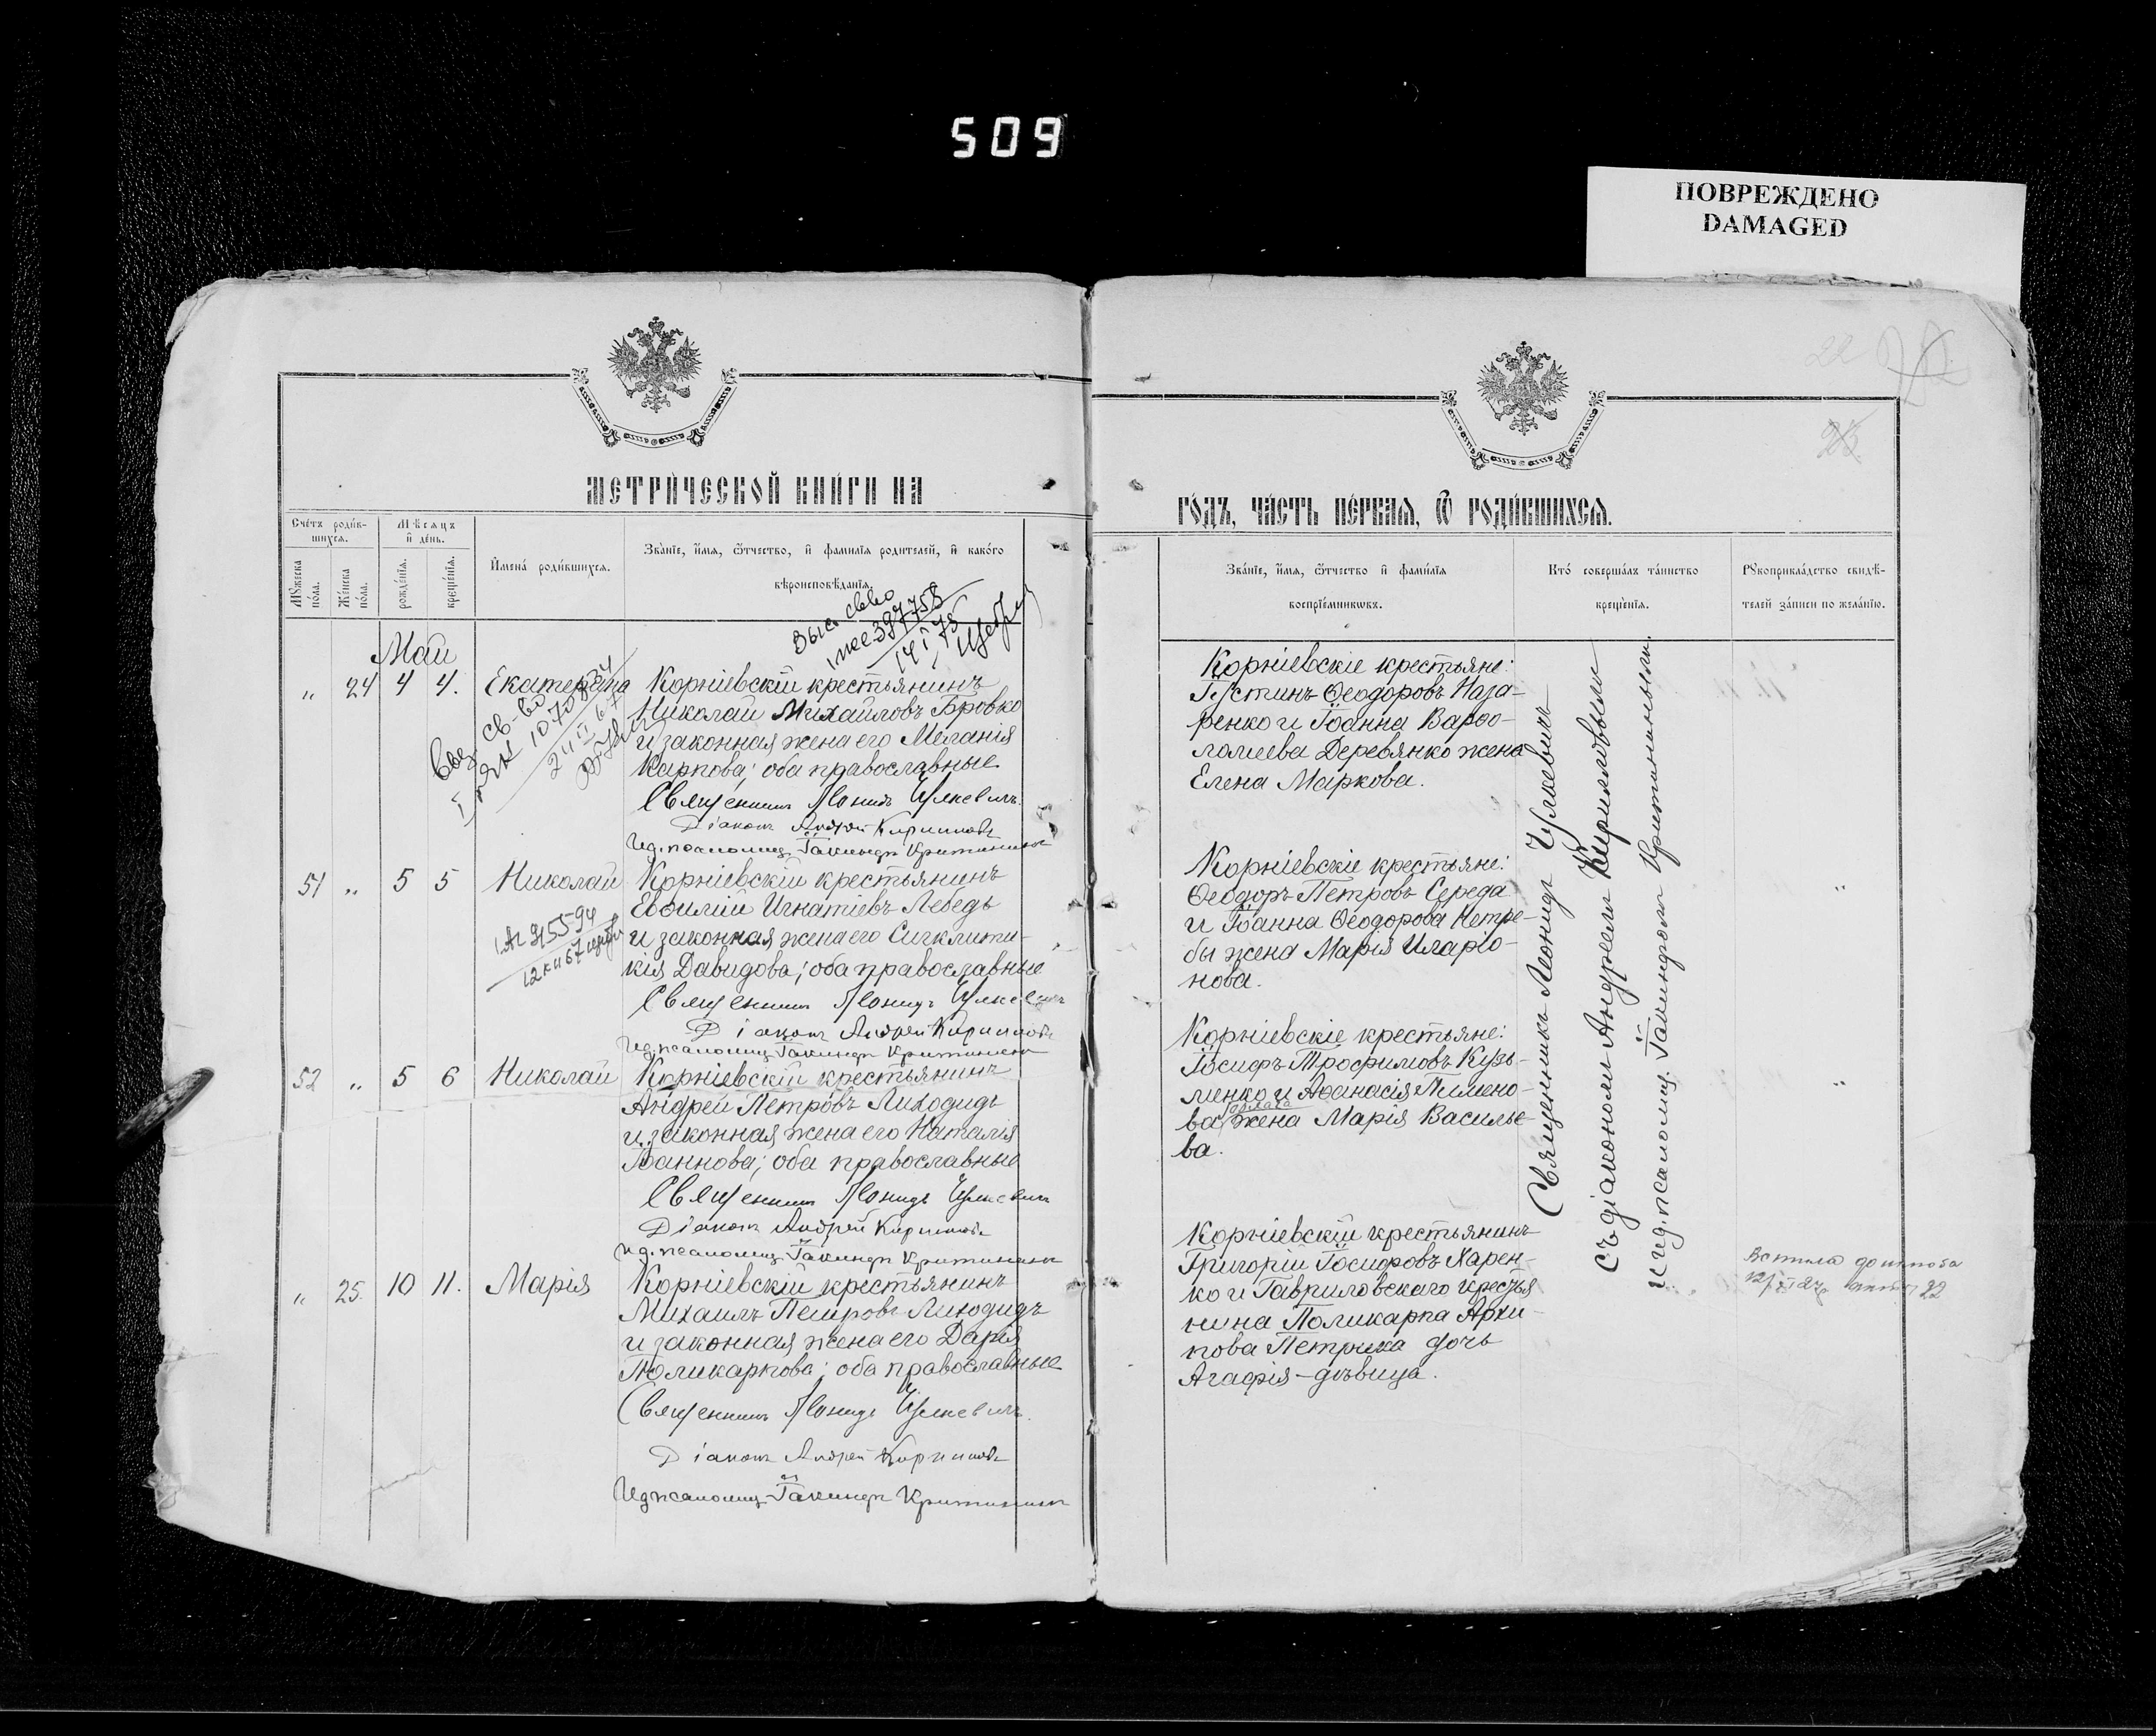 509
ПОВРЕЖДЕНО
DAMAGED
22
23
МЕТРИ́ЧЕСКОЙ КНИ́ГИ НА
ГО́ДЪ, ЧА́СТЬ ПЕ́РВАЯ, Ѿ РОДИ́ВШИХСЯ.
Сче́тъ роди́в-
шихся.
Мѣ́сяцъ
и҆ де́нь.
Мꙋ́жеска
по́ла.
Же́нска
по́ла.
рожде́нїя.
креще́нїя.
И҆мена̀ роди́вшихся.
Зва́нїе, и҆́мя, ѻ҆́тчество, и҆ фами́лїя роди́телей, и҆ како́го
вѣроисповѣ́данїя.
Зва́нїе, и҆́мя, ѻ҆́тчество и҆ фами́лїя
воспрїе́мникѡвъ.
Кто̀ соверша́лъ та́инство
креще́нїя.
Рꙋкоприкла́дство свидѣ́-
телей за́писи по жела́нїю.
Май
„ 24 4 4. Екатерина
Корніевскій крестьянинъ
Николай Михайловъ Бровко
и законная жена его Меланія
Карпова; оба православные
Священникъ Леонидъ
Діаконъ Андрей Кирилловъ
Ид. псаломщ. Іакинфъ
Корніевскіе крестьяне:
Іустинъ Ѳеодоровъ Наза-
ренко и Іоанна Варѳо-
ломеева Деревянко жена
Елена Маркова.
51 „ 5 5 Николай
Корніевскій крестьянинъ
Евѳимій Игнатіевъ Лебедь
и законная жена его Сигклити-
кія Давидова; оба православные
Священникъ Леонидъ
Діаконъ Андрей Кирилловъ
Ид. псаломщ. Іакинфъ
Корніевскіе крестьяне:
Ѳеодоръ Петровъ Середа
и Іоанна Ѳеодорова Нетре-
бы жена Марія Иларіо-
нова.
„
52 „ 5 6 Николай
Корніевскій крестьянинъ
Андрей Петровъ Лиходидъ
и законная жена его Наталія
Іоаннова; оба православные
Священникъ Леонидъ
Діаконъ Андрей Кирилловъ
Ид. псаломщ. Іакинфъ
Корніевскіе крестьяне:
Іосифъ Трофимовъ Кузь-
менко и Аѳанасія Пимено-
ва жена Марія Василье-
ва.
„
„ 25. 10 11. Марія
Корніевскій крестьянинъ
Михаилъ Петровъ Лиходидъ
и законная жена его Дарія
Поликарпова; оба православные
Священникъ Леонидъ
Діаконъ Андрей Кирилловъ
Ид. псаломщ. Іакинфъ
Корніевскій крестьянинъ
Григорій Іосифовъ Харен-
ко и Гавриловскаго крестья
нина Поликарпа Архи-
пова Петрика дочь
Агафія - дѣвица.
Священникъ Леонидъ
съ діакономъ Андреемъ Кирилловымъ
и ид. псаломщ. Іакинфомъ